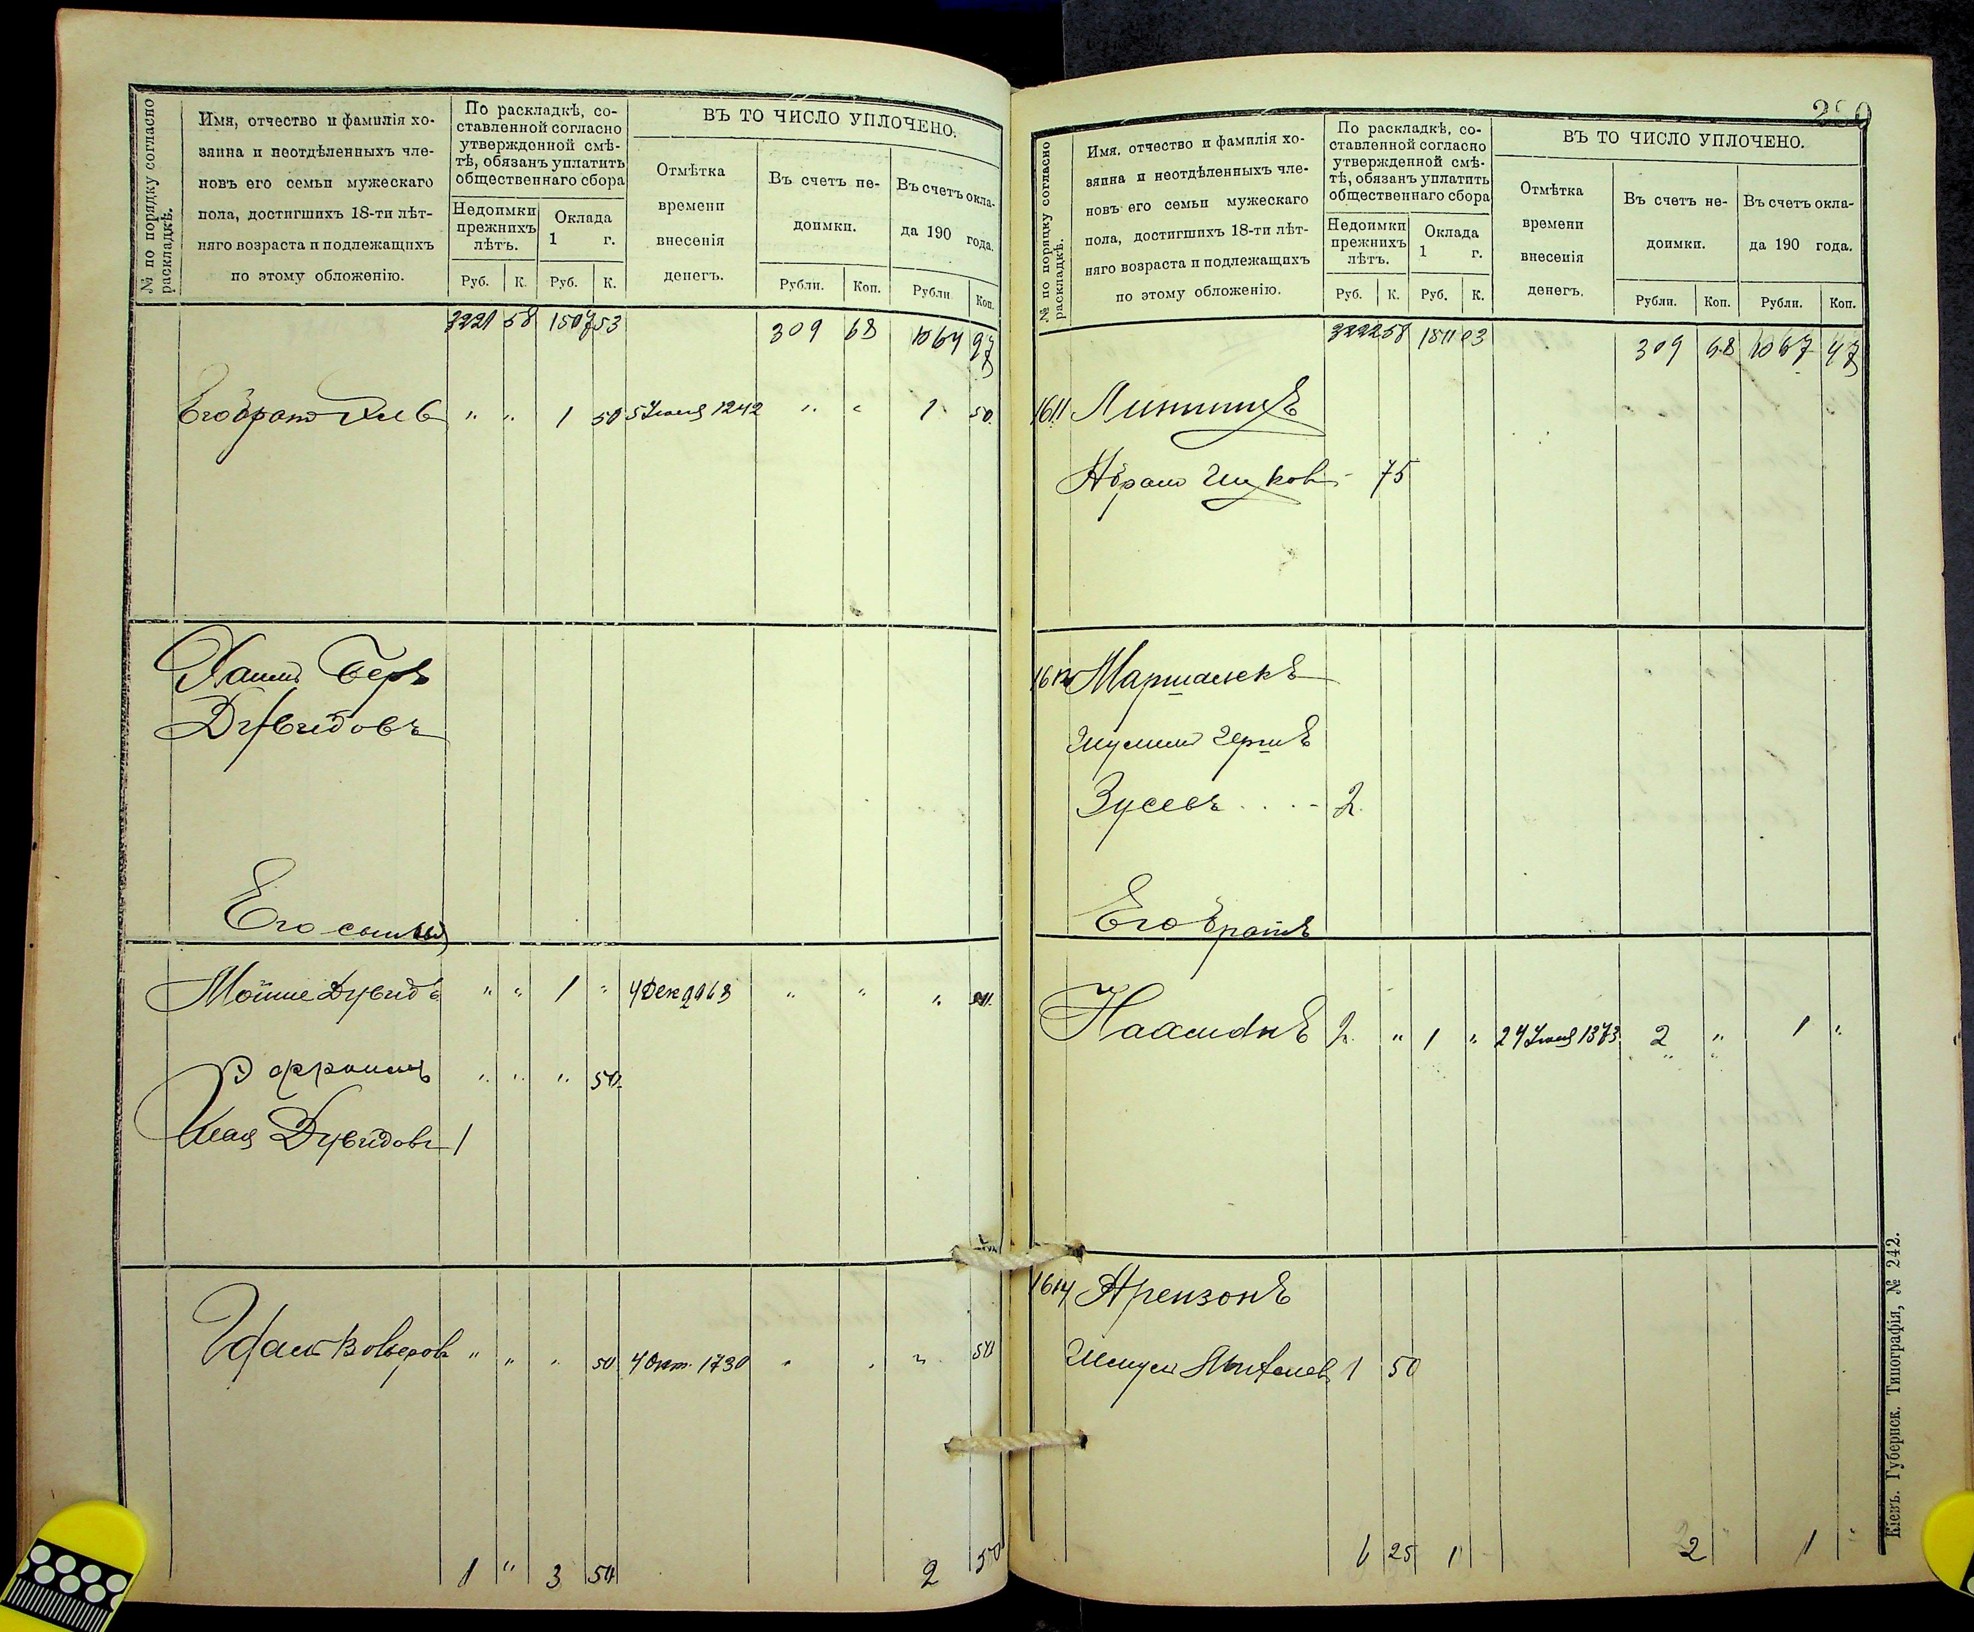 № по порядку согласно раскладкѣ.
Имя, отчество и фамилія хо-
зяина и неотдѣленныхъ чле-
новъ его семьи мужескаго
пола, достигшихъ 18-ти лѣт-
няго возраста и подлежащихъ
по этому обложенію.
По раскладкѣ, со-
ставленной согласно
утвержденной смѣ-
тѣ, обязанъ уплатить
общественнаго сбора
Недоимки прежнихъ лѣтъ.
Оклада 1 г.
Руб. К. Руб. К.
ВЪ ТО ЧИСЛО УПЛОЧЕНО.
Отмѣтка времени внесенія денегъ.
Въ счетъ не-
доимки.
Рубли. Коп.
Въ счетъ окла-
да 190 года.
Рубли Коп.
3221 58 1507 53 309 68 1064 97
Его братъ " " 1 50 5 Іюня 1242 " " 1 50
Хаимъ Беръ
Дувидовъ
Его сыновья
Мойше Дувидъ " " 1 " 4 Дек 2968 " " " 50
Эфроимъ " " " 50
Дувидовъ 1
" " " 50 4 Окт. 1730 " " " 50
1 " 3 50 2 50
№ по порядку согласно раскладкѣ.
Имя, отчество и фамилія хо-
зяина и неотдѣленныхъ чле-
новъ его семьи мужескаго
пола, достигшихъ 18-ти лѣт-
няго возраста и подлежащихъ
по этому обложенію.
По раскладкѣ, со-
ставленной согласно
утвержденной смѣ-
тѣ, обязанъ уплатить
общественнаго сбора
Недоимки прежнихъ лѣтъ.
Оклада 1 г.
Руб. К. Руб. К.
ВЪ ТО ЧИСЛО УПЛОЧЕНО.
Отмѣтка времени внесенія денегъ.
Въ счетъ не-
доимки.
Рубли. Коп.
Въ счетъ окла-
да 190 года.
Рубли. Коп.
3222 58 1511 03 309 68 1067 47
1611
Абрамъ Ицковъ 75
1612 Маршалекъ
Шулимъ Гершъ
Зусевъ 2
Его братъ
Нахманъ 2 " 1 " 24 Іюня 1373 2 " 1 "
1614 Арензонъ
1 50
25 1 2 " 1 "
Кіевъ. Губернск. Типографія, № 242.